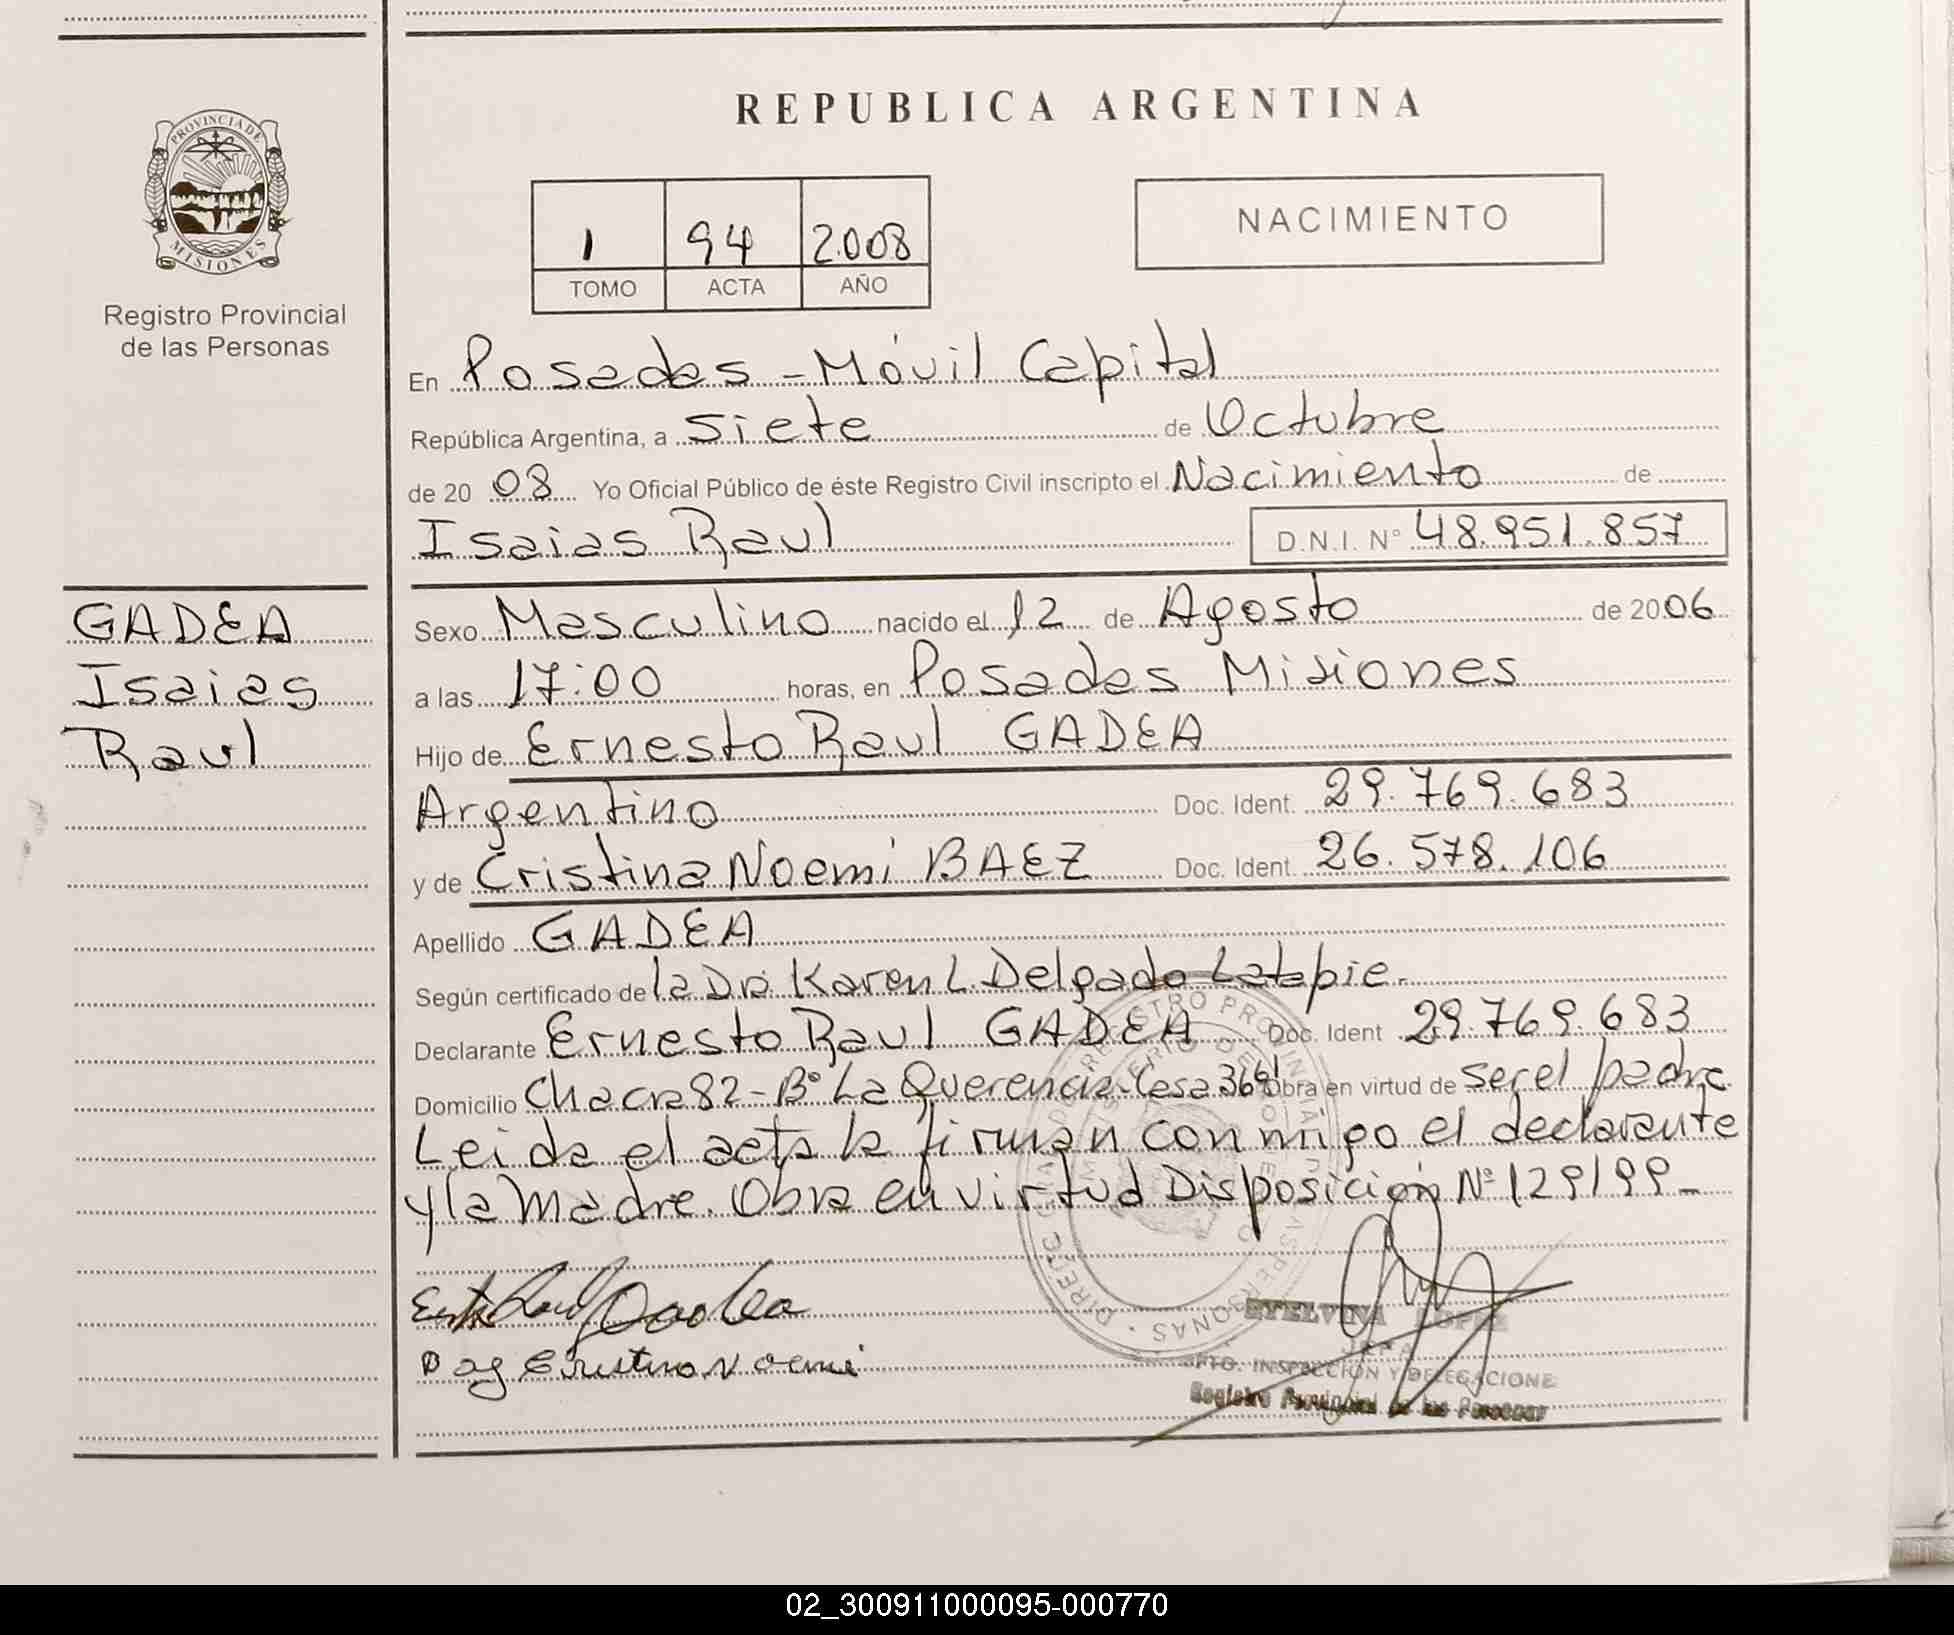 REPUBLICA ARGENTINA
PROVINCIA DE
MISIONES
Registro Provincial
de las Personas
1 94 2008
TOMO ACTA AÑO
NACIMIENTO
En Posadas - Móvil Capital
República Argentina, a siete de Octubre
de 20 08 Yo Oficial Público de éste Registro Civil inscripto el Nacimiento de
Isaias Raul D.N.I. Nº 48.951.857
GADEA
Isaias
Raul
Sexo Masculino nacido el 12 de Agosto de 2006
a las 17:00 horas, en Posadas Misiones
Hijo de Ernesto Raul GADEA
Argentino Doc. Ident. 29.769.683
y de Cristina Noemi BAEZ Doc. Ident. 26.578.106
Apellido GADEA
Según certificado de la Dra Karen L. Delgado Latapie.
Declarante Ernesto Raul GADEA Doc. Ident 29.769.683
Domicilio Chacra 82 - Bº La Querencia - Casa 369 Obra en virtud de ser el padre
Leida el acta la firman con migo el declarante
y la Madre. Obra en virtud Disposición Nº 129/99 -
ETELVINA LOPEZ
JEFA
DPTO. INSPECCION Y DELEGACIONE
Registro Provincial de las Personas
Cristina Noemi
02_300911000095-000770